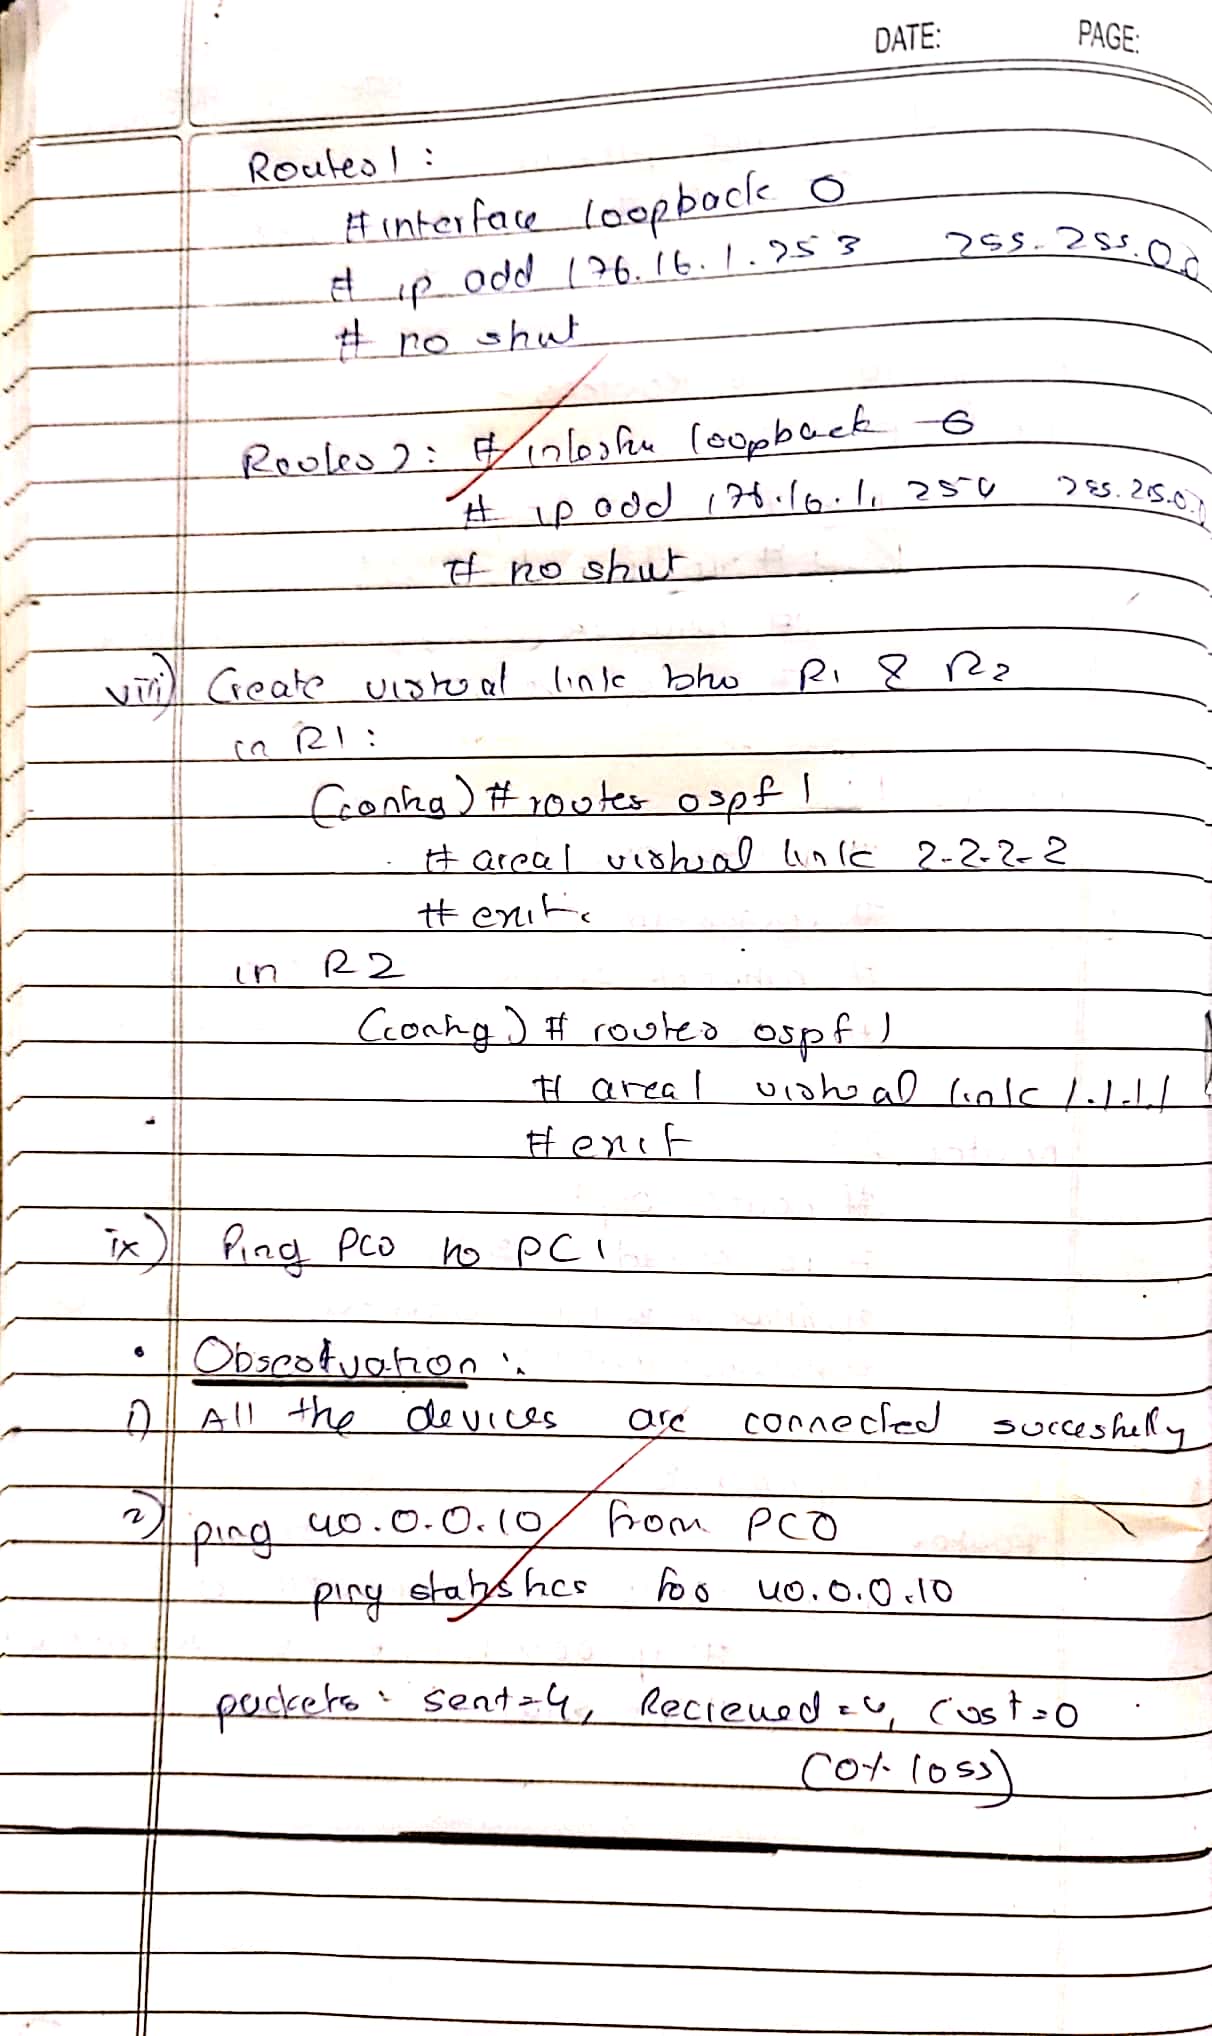 DATE: PAGE:
Router 1 :
# interface loopback 0
# ip add 176.16.1.253 255.255.0.0
# no shut
Router 2 : # interface loopback 0
# ip add 176.16.1.254 255.255.0.0
# no shut
viii) Create virtual link btw R1 & R2
in R1 :
(config) # router ospf 1
# area 1 virtual link 2.2.2.2
# exit
in R2
(config) # router ospf 1
# area 1 virtual link 1.1.1.1
# exit
ix) Ping PC0 to PC1
• Observation :
1) All the devices are connected succesfully
2) ping 40.0.0.10 from PC0
ping statistics for 40.0.0.10
packets : sent=4, Recieved=4, Lost=0
(0% loss)